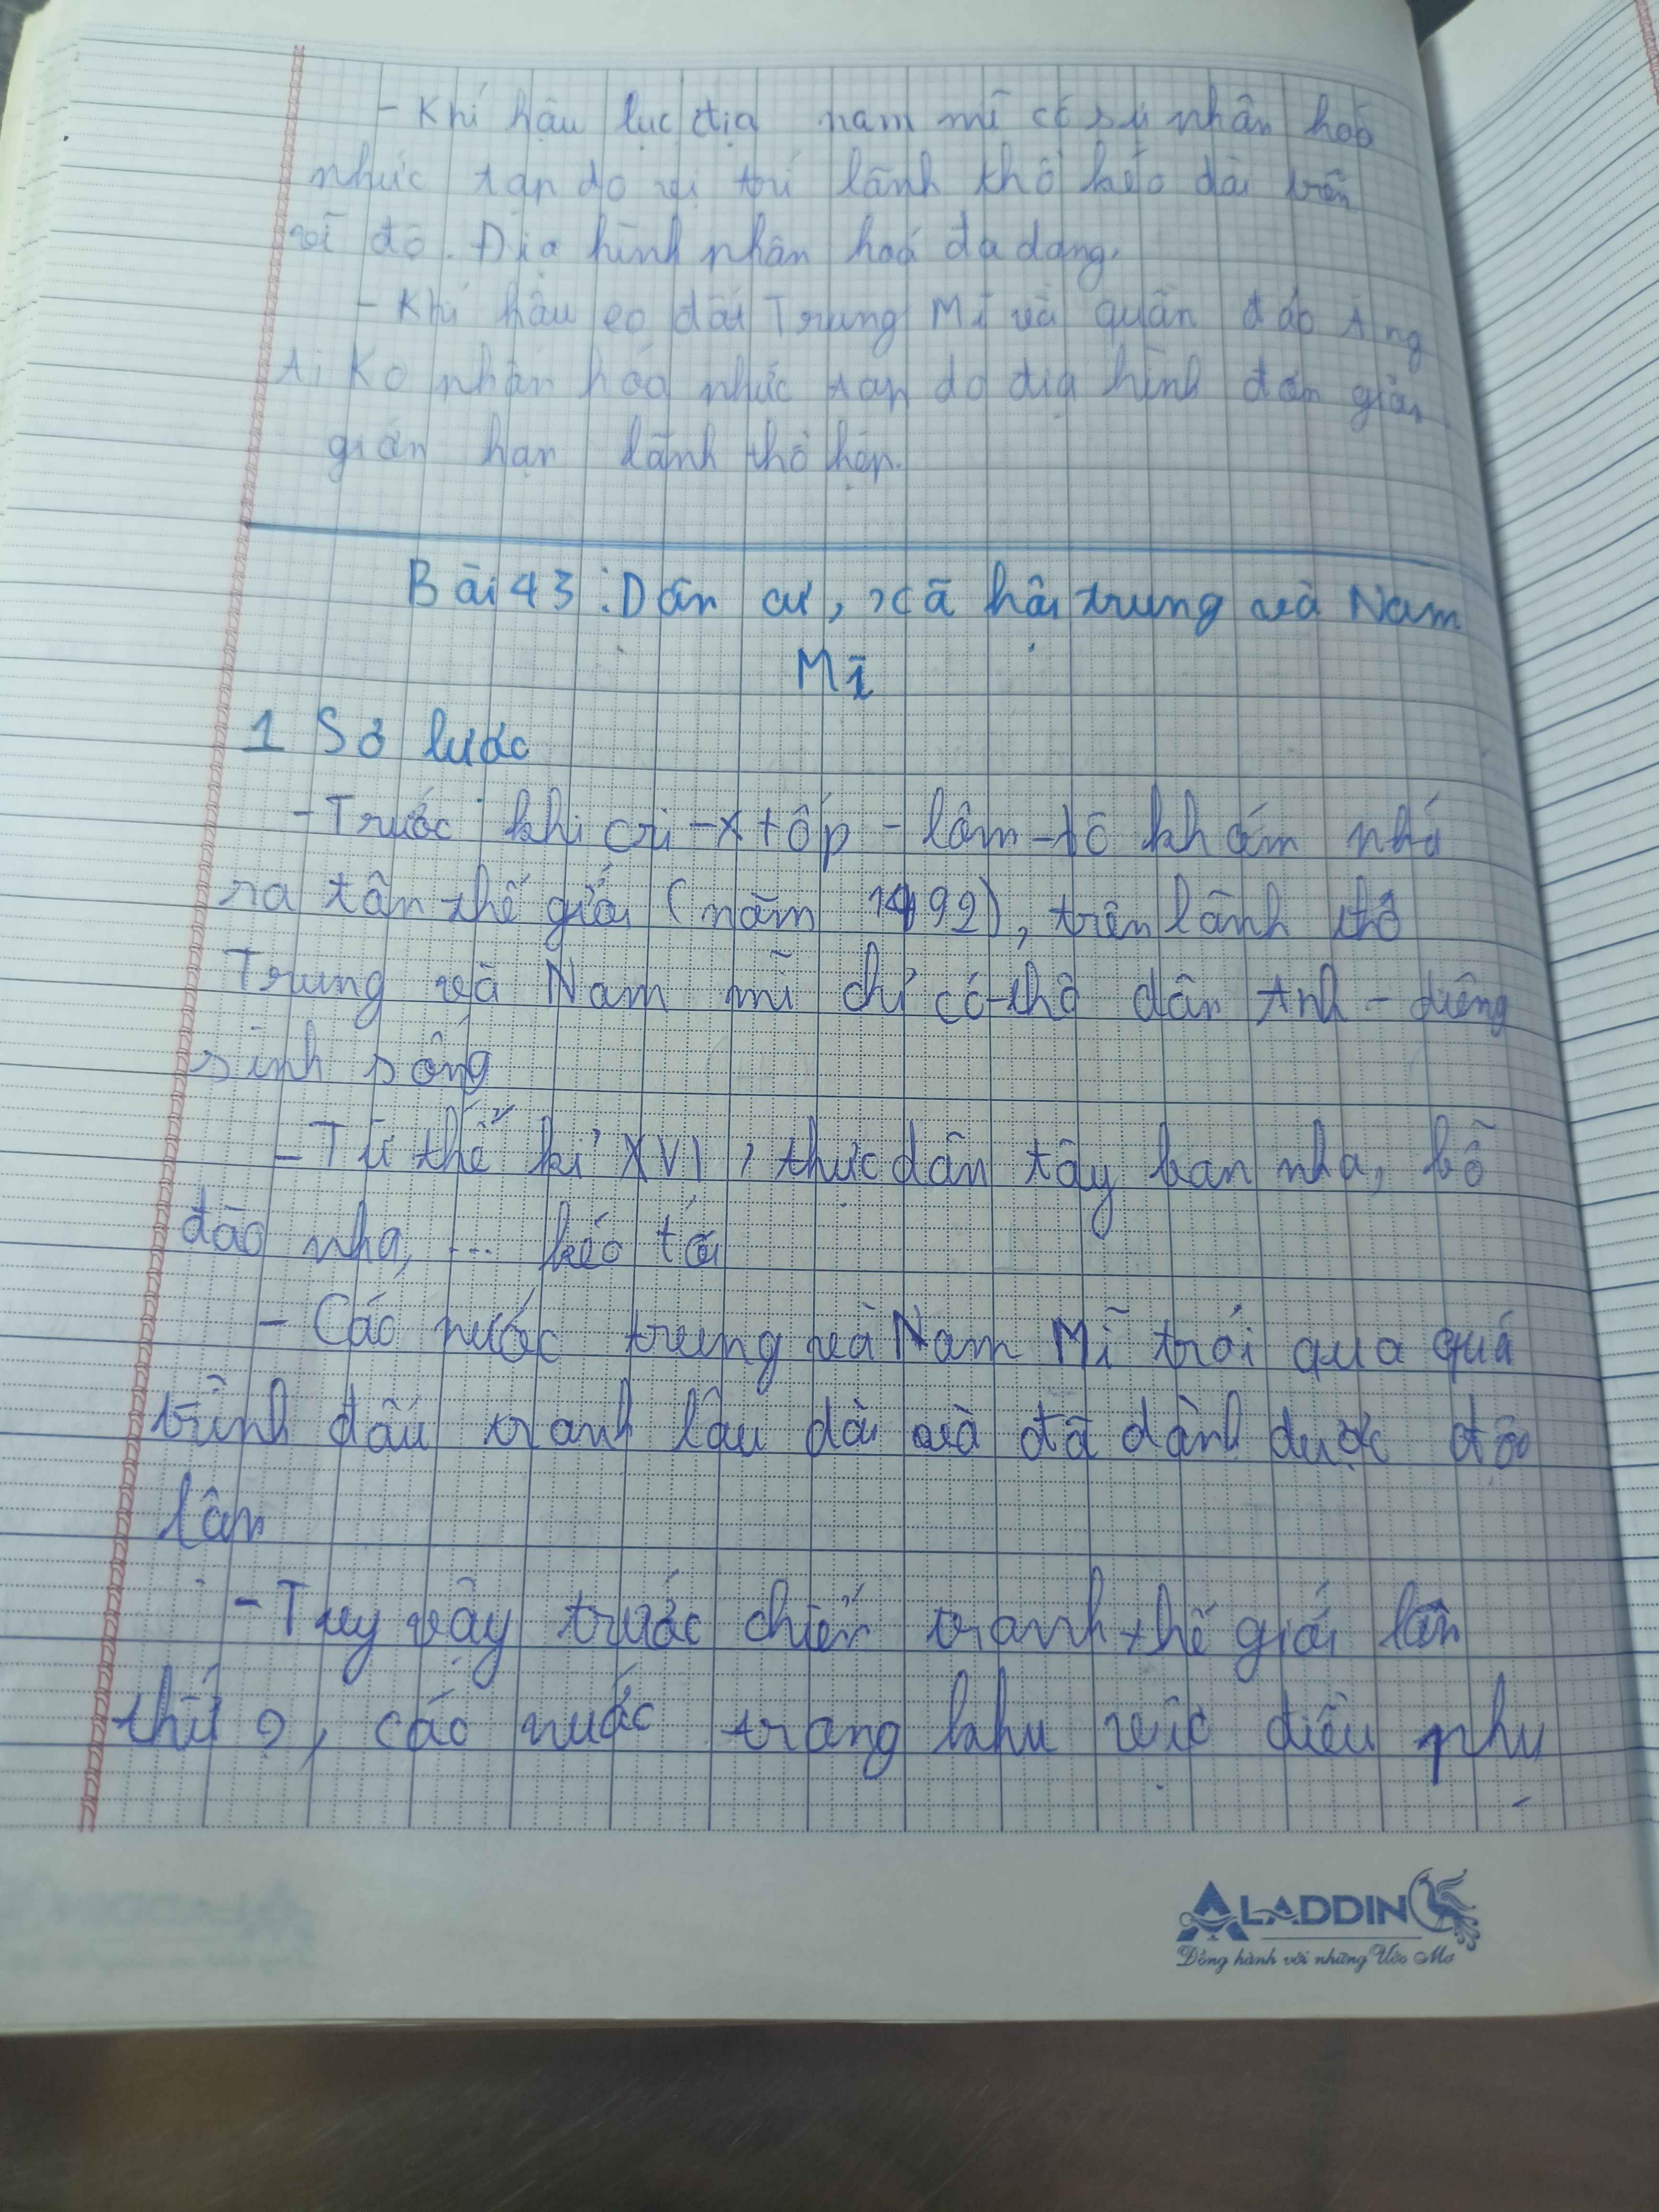 - Khí hậu lục địa nam mĩ có sự phân hoá
phức tạp do vị trí lãnh thổ kéo dài trên
vĩ độ. Địa hình phân hoá đa dạng.
- Khí hậu eo đất Trung Mĩ và quần đảo Ăng
Ti Ko phân hoá phức tạp do địa hình đơn giản
giới hạn lãnh thổ hẹp.
Bài 43: Dân cư, xã hội trung và Nam
Mĩ
1 Sơ lược
- Trước khi cri-xtốp-lôm-bô khám phá
ra tân thế giới (năm 1492), trên lãnh thổ
Trung và Nam mĩ chỉ có thổ dân Anh-điêng
sinh sống
- Từ thế kỉ XVI, thực dân tây ban nha, bồ
đào nha, ... kéo tới
- Các nước trung và Nam Mĩ trải qua quá
trình đấu tranh lâu dài và đã dành được độc
lập
- Tuy vậy trước chiến tranh thế giới lần
thứ 2, các nước trong khu vực điều phụ
ALADDIN
Đồng hành với những Ước Mơ